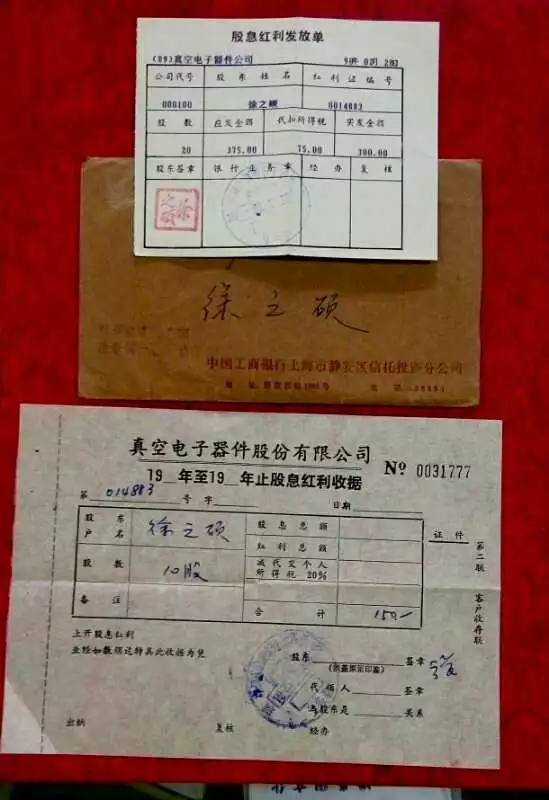 股息红利发放单
(89)真空电子器件公司
公司代号 股东姓名 红利证编号
000100 徐之硕 0014883
股数 应发金额 代扣所得税 实发金额
20 375.00 75.00 300.00
股东签章 银行业务章 经办 复核
徐之硕
中国工商银行上海市静安区信托投资分公司
真空电子器件股份有限公司
19 年至19 年止股息红利收据
Nº 0031777
第 014883 号 字 日期
股东户名 徐之硕 股息总额
红利总额
股数 10股 减代交个人所得税20%
备注 合计 150-
证件
第二联 客户收存联
上开股息红利
业经如数领讫特具此收据为凭
股东 签章
(须盖原留印鉴)
代领人 签章
与股东是 关系
出纳 复核 经办